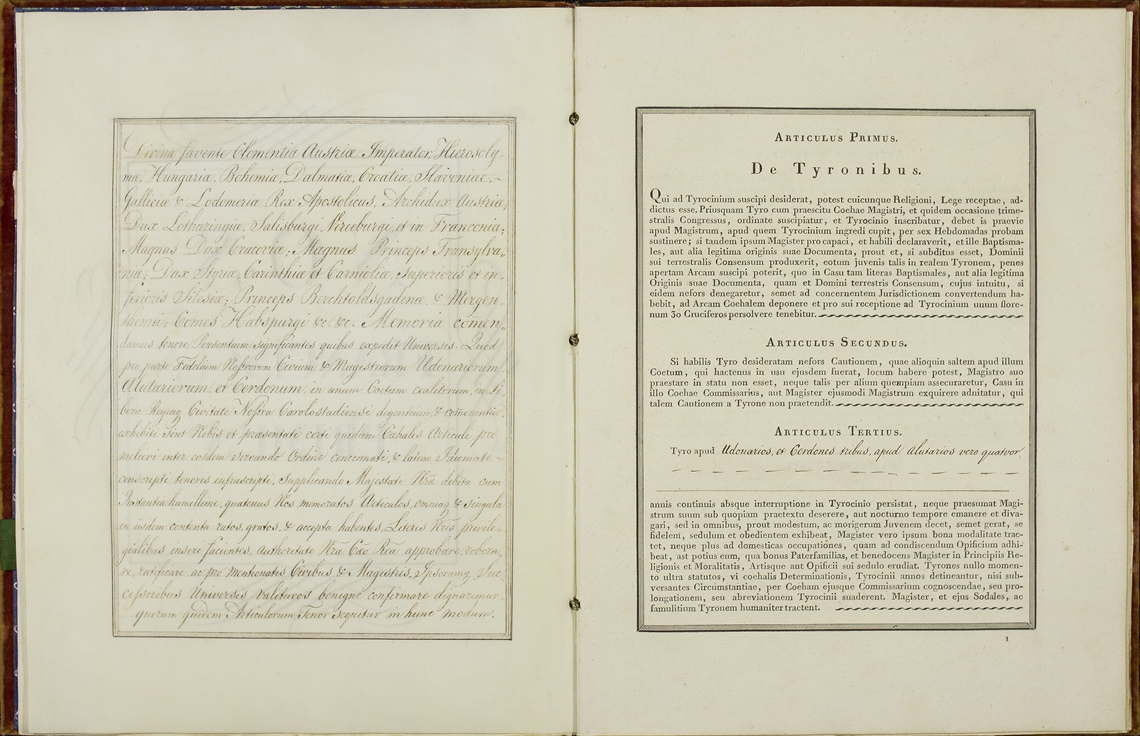 Divina favente Clementia Austriæ Imperator, Hierosoly-
mæ, Hungariæ, Bohemiæ, Dalmatiæ, Croatiæ, Slavoniæ,
Galliciæ & Lodomeriæ Rex Apostolicus, Archidux Austriæ,
Dux Lotharingiæ, Salisburgi, Virceburgi, et in Franconia,
Magnus Dux Cracoviæ; Magnus Princeps Transylva-
niæ; Dux Styriæ, Carinthiæ et Carnioliæ, Superioris et in-
ferioris Silesiæ; Princeps Berchtoldsgadenæ & Mergen-
themii; Comes Habspurgi &c. &c. Memoriæ comen-
damus tenore Præsentium significantes quibus expedit Universis. Quod
pro parte Fidelium Nostrorum Civium & Magistrorum Udonariorum,
Alutariorum, et Cerdonum, in unum Coetum coalitorum, in Li-
bera Regiaq Civitate Nostra Carolostadiensi degentium, &
exhibiti sint Nobis et præsentati certi quidam Cæhales Articuli pro
meliori inter eosdem servando Ordine concinnati, & latino Idiomate
conscripti tenoris infrascripti, Supplicando Majestati Nræ debita cum
Instantia humillime, quatenus Nos memoratos Articulos, omniaq & singula
in iisdem contenta ratos, gratos, & accepta habentes, Literis Nris privile-
gialibus inseri facientes, Authoritate Nra Cæo Rea approbare, robora-
re, ratificare, ac pro mentionatis Civibus & Magistris, Ipsorumq Suc-
cessoribus Universis valituros benigne confirmare dignaremur,
quorum quidem Articulorum Tenor sequitur in hunc modum.
Articulus Primus.
De Tyronibus.
Qui ad Tyrocinium suscipi desiderat, potest cuicunque Religioni, Lege receptae, ad-
dictus esse. Priusquam Tyro cum praescitu Coehae Magistri, et quidem occasione trime-
stralis Congressus, ordinate suscipiatur, et Tyrocinio inscribatur, debet is praevie
apud Magistrum, apud quem Tyrocinium ingredi cupit, per sex Hebdomadas probam
sustinere; si tandem ipsum Magister pro capaci, et habili declaraverit, et ille Baptisma-
les, aut alia legitima originis suae Documenta, prout et, si subditus esset, Dominii
sui terrestralis Consensum produxerit, eotum juvenis talis in realem Tyronem, penes
apertam Arcam suscipi poterit, quo in Casu tam literas Baptismales, aut alia legitima
Originis suae Documenta, quam et Domini terrestris Consensum, cujus intuitu, si
eidem nefors denegaretur, semet ad concernentem Jurisdictionem convertendum ha-
bebit, ad Arcam Coehalem deponere et pro sui receptione ad Tyrocinium unum flore-
num 30 Cruciferos persolvere tenebitur.
Articulus Secundus.
Si habilis Tyro desideratam nefors Cautionem, quae alioquin saltem apud illum
Coetum, qui hactenus in usu ejusdem fuerat, locum habere potest, Magistro suo
praestare in statu non esset, neque talis per alium quempiam assecuraretur, Casu in
illo Coehae Commissarius, aut Magister ejusmodi Magistrum exquirere adnitatur, qui
talem Cautionem a Tyrone non praetendit.
Articulus Tertius.
Tyro apud Udonarios, et Cerdones tribus, apud Alutarios vero quatvor
annis continuis absque interruptione in Tyrocinio persistat, neque praesumat Magi-
strum suum sub quopiam praetextu deserere, aut nocturno tempore emanere et diva-
gari, sed in omnibus, prout modestum, ac morigerum Juvenem decet, semet gerat, se
fidelem, sedulum et obedientem exhibeat, Magister vero ipsum bona modalitate trac-
tet, neque plus ad domesticas occupationes, quam ad condiscendum Opificium adhi-
beat, ast potius eum, qua bonus Paterfamilias, et benedocens Magister in Principiis Re-
ligionis et Moralitatis, Artisque aut Opificii sui sedulo erudiat. Tyrones nullo momen-
to ultra statutos, vi coehalis Determinationis, Tyrocinii annos detineantur, nisi sub-
versantes Circumstantiae, per Coeham ejusque Commissarium cognoscendae, seu pro-
longationem, seu abreviationem Tyrocinii suaderent. Magister, et ejus Sodales, ac
famulitium Tyronem humaniter tractent.
1